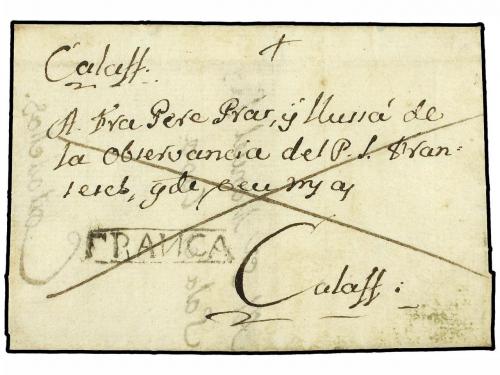 Calaff.
A Fra Pere Pras, y Llussá de
la Observancia del P. S. Fran-
sesch, q.de
FRANCA
Calaff: